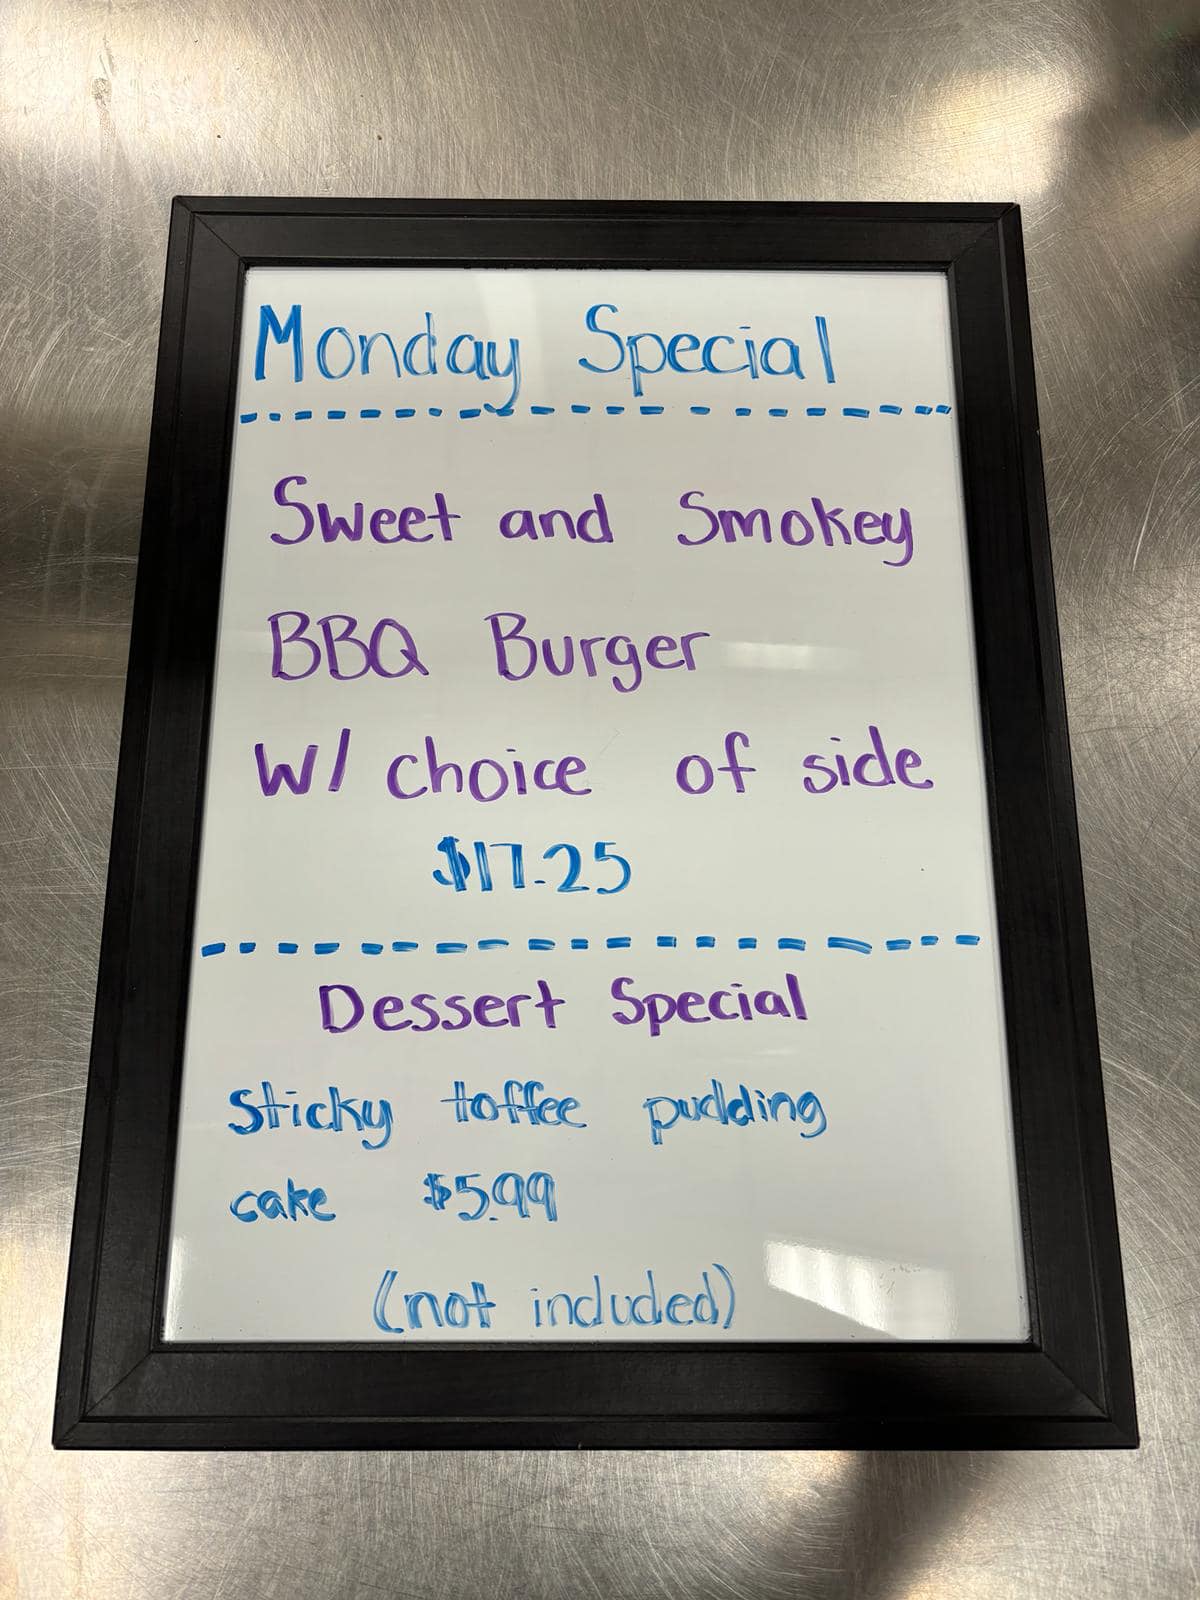 Monday Special
Sweet and Smokey
BBQ Burger
W/ choice of side
$17.25
Dessert Special
Sticky toffee pudding
cake $5.99
(not included)